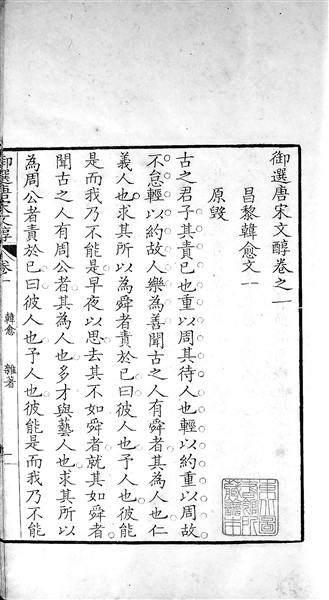 御選唐宋文醇卷之一
昌黎韓愈文一
原毀
古之君子其責已也重以周其待人也輕以約重以周故
不怠輕以約故人樂為善聞古之人有舜者其為人也仁
義人也求其所以為舜者責於已曰彼人也予人也彼能
是而我乃不能是早夜以思去其不如舜者就其如舜者
聞古之人有周公者其為人也多才與藝人也求其所以
為周公者責於已曰彼人也予人也彼能是而我乃不能
御選唐宋文醇
卷一
韓愈
雜著
一